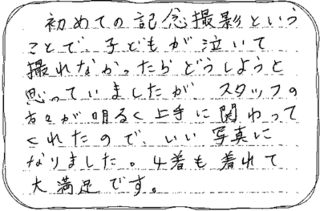 初めての記念撮影という
ことで、子どもが泣いて
撮れなかったらどうしようと
思っていましたが、スタッフの
方々が明るく上手に関わって
くれたので、いい写真に
なりました。4着も着れて
大満足です。